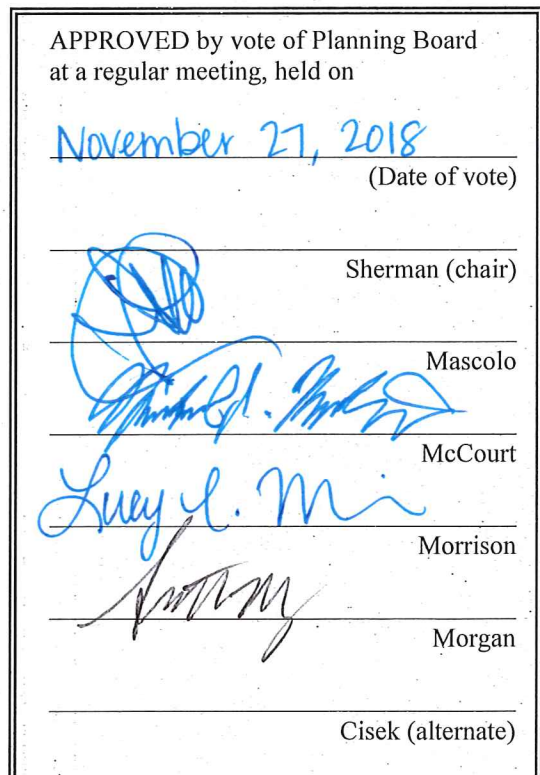 APPROVED by vote of Planning Board
at a regular meeting, held on
November 27, 2018
(Date of vote)
Sherman (chair)
Mascolo
McCourt
Lucy
Morrison
Morgan
Cisek (alternate)